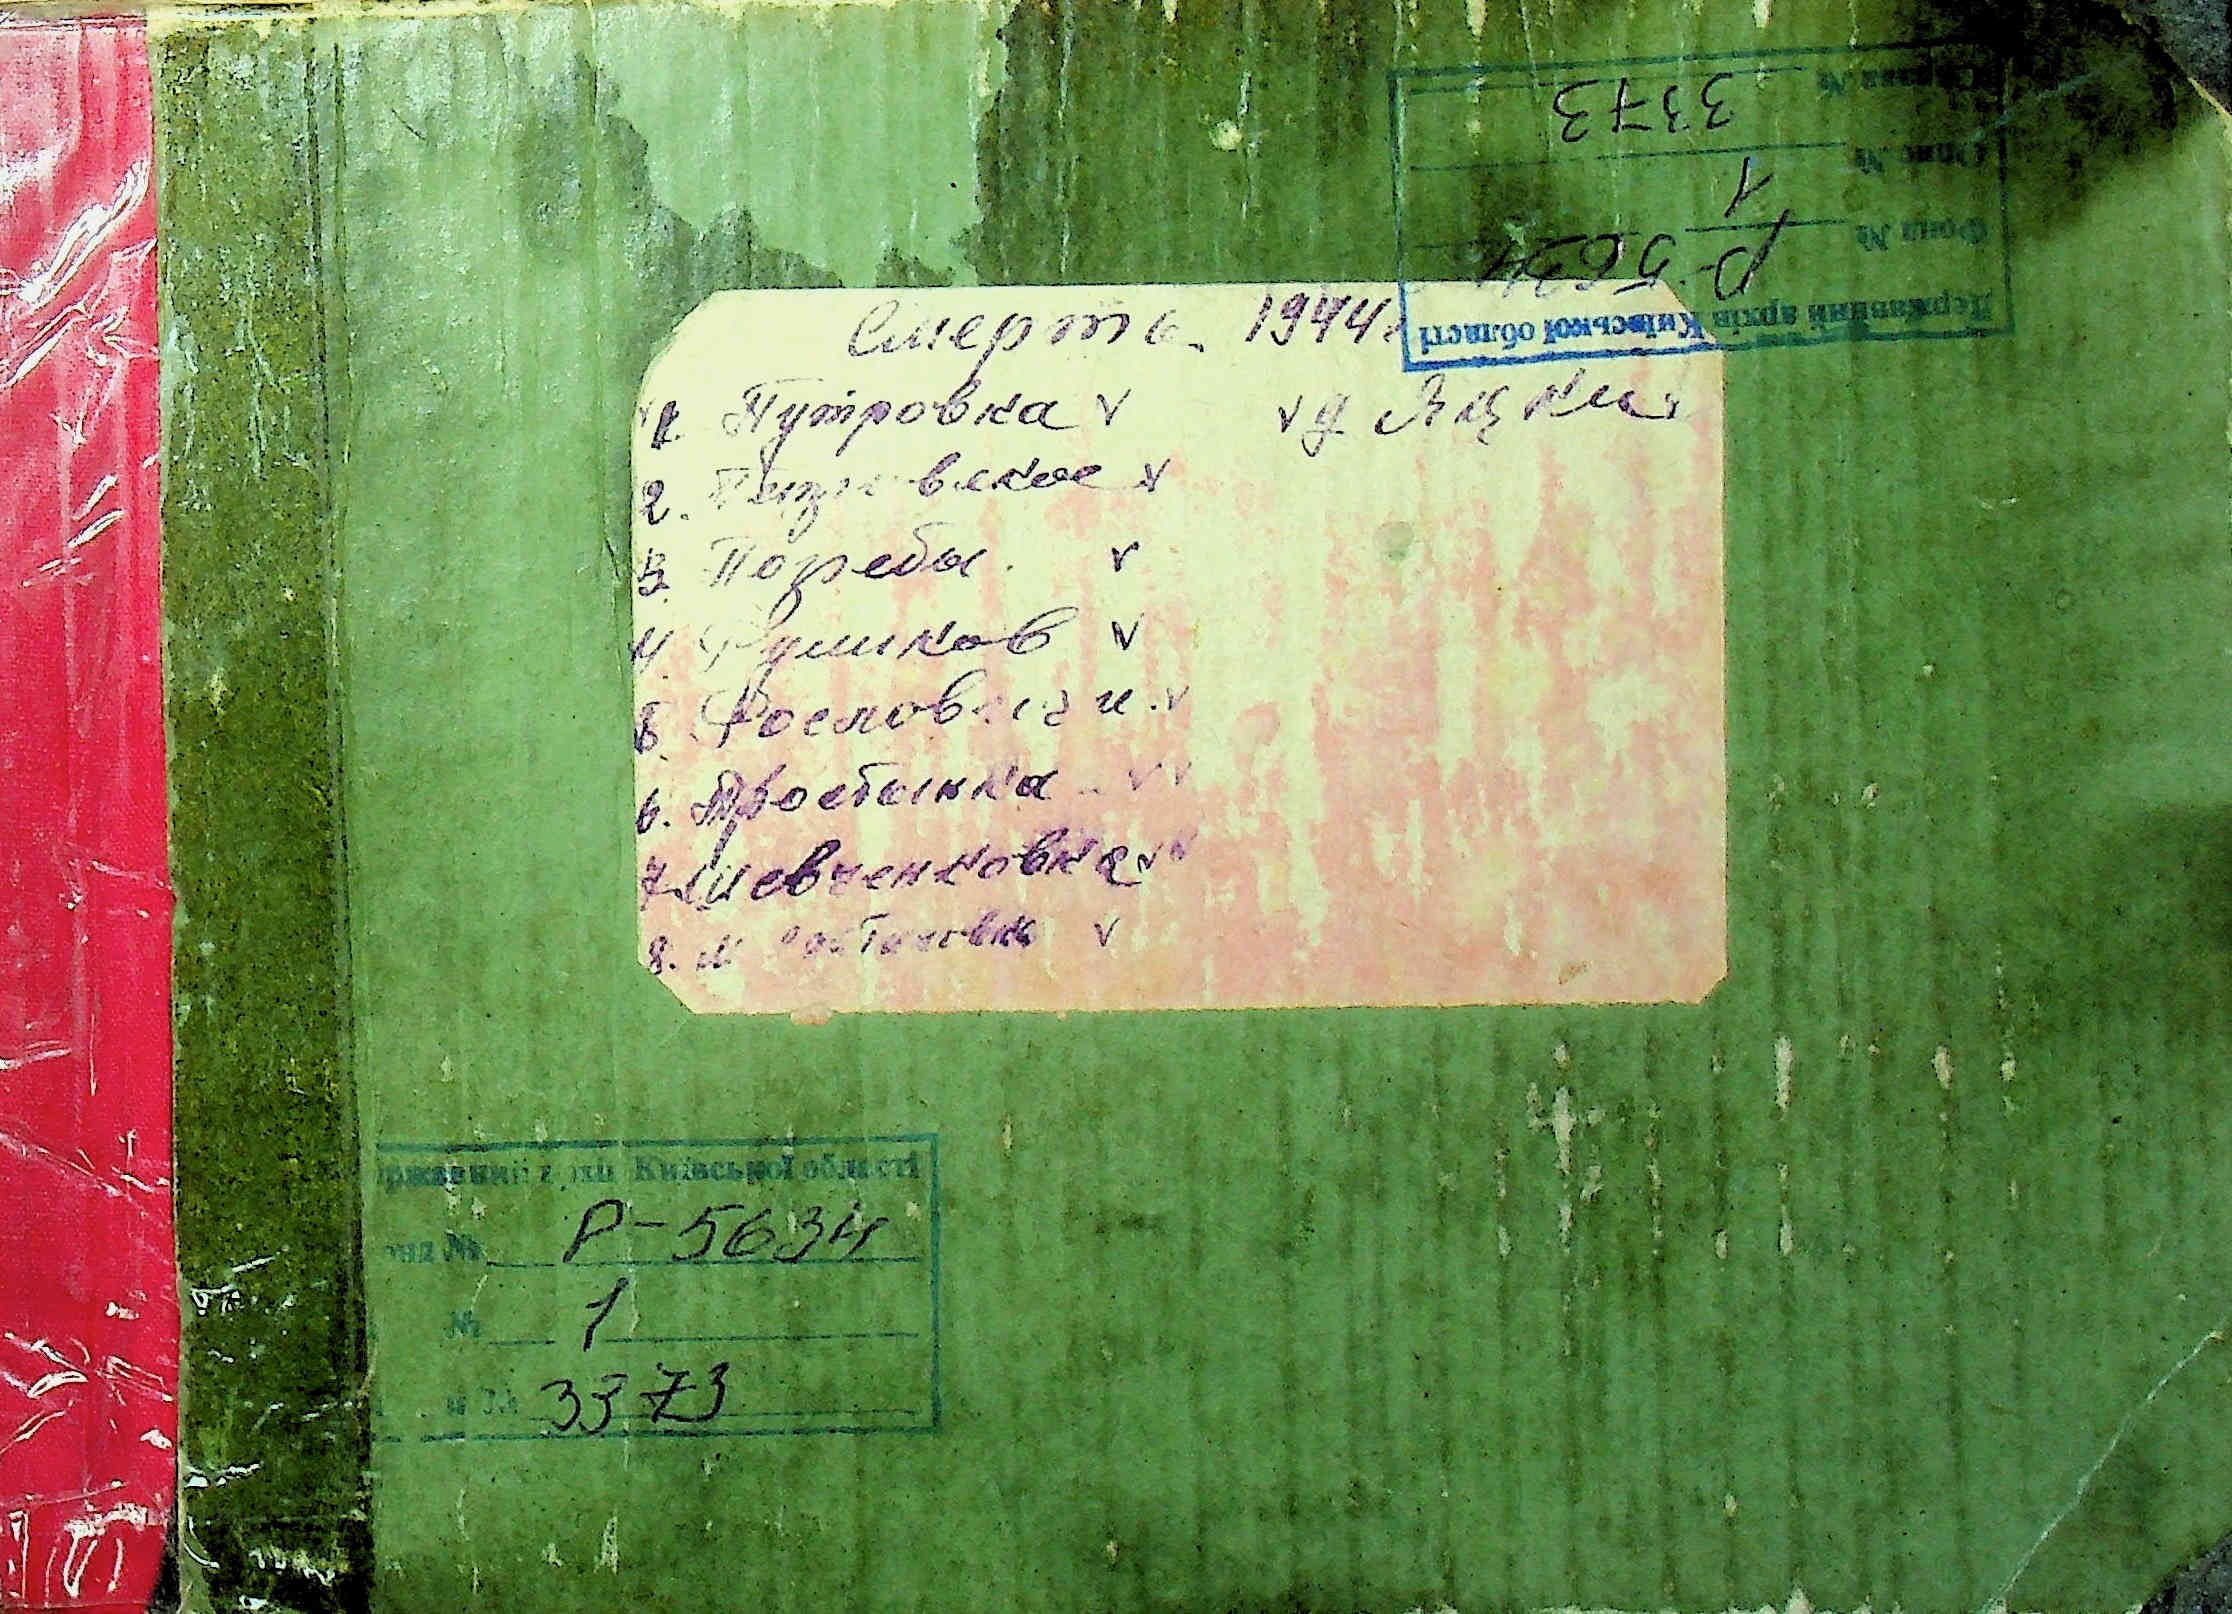 Державний архів Київської області
Фонд № Р-5634
Опис № 1
Справа № 3373
Смерть. 1944г
1. Путровка ✓
✓ 9. Яцки
2.
3. Погребы. ✓
4. Румиков ✓
5.
6. Тростинка ✓✓
7. Шевченковка ✓✓
8. ✓
ржавний архів Київської області
онд № Р-5634
№ 1
3373